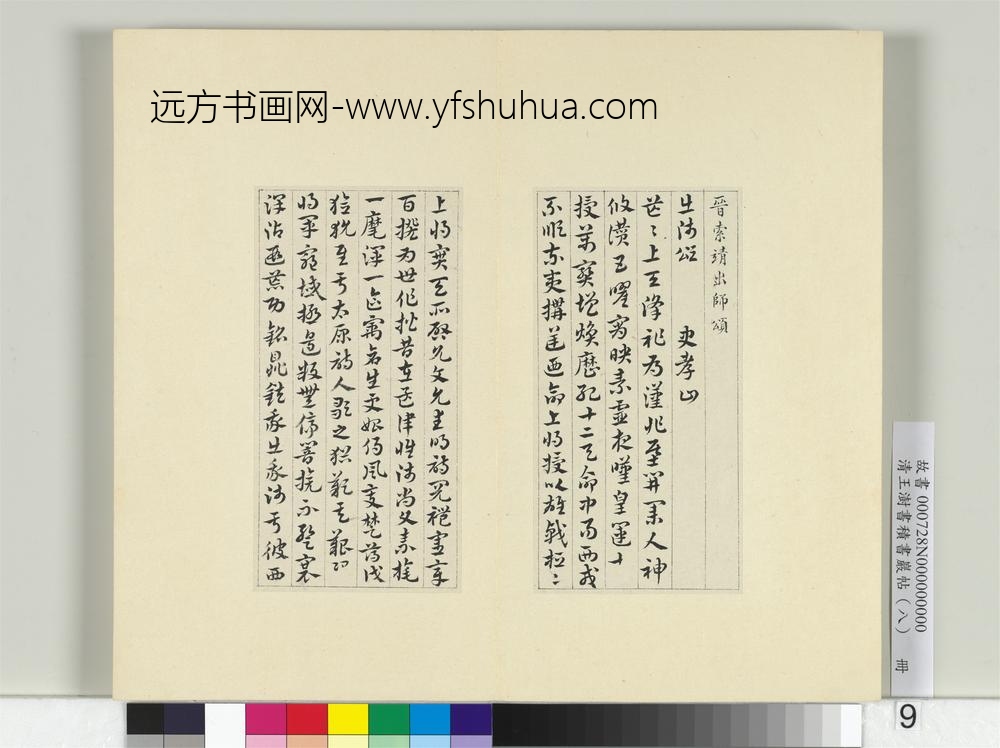 远方书画网-www.yfshuhua.com
晉索靖出師頌
出師頌 史孝山
茫〻上天降祚為漢兆基開業人神
攸讚五曜霄映素靈夜嘆皇運未
授萬寶增煥歷紀十二天命中易西戎
不順東夷構逆迺命上將授以雄戟桓〻
上將實天所啟允文允武明詩閱禮憲章
百揆為世作楷昔在孟津惟師尚父素旄
一麾渾一區宇蒼生更始朔風變楚薄伐
獫狁至于太原詩人歌之猶歎其艱況
將軍窮域極邊鼓無停響旗不蹔褰
澤沾遐荒功銘鼎鉉我出我師于彼西
故書 000728N000000000
清王澍書積書巖帖（八） 冊
9